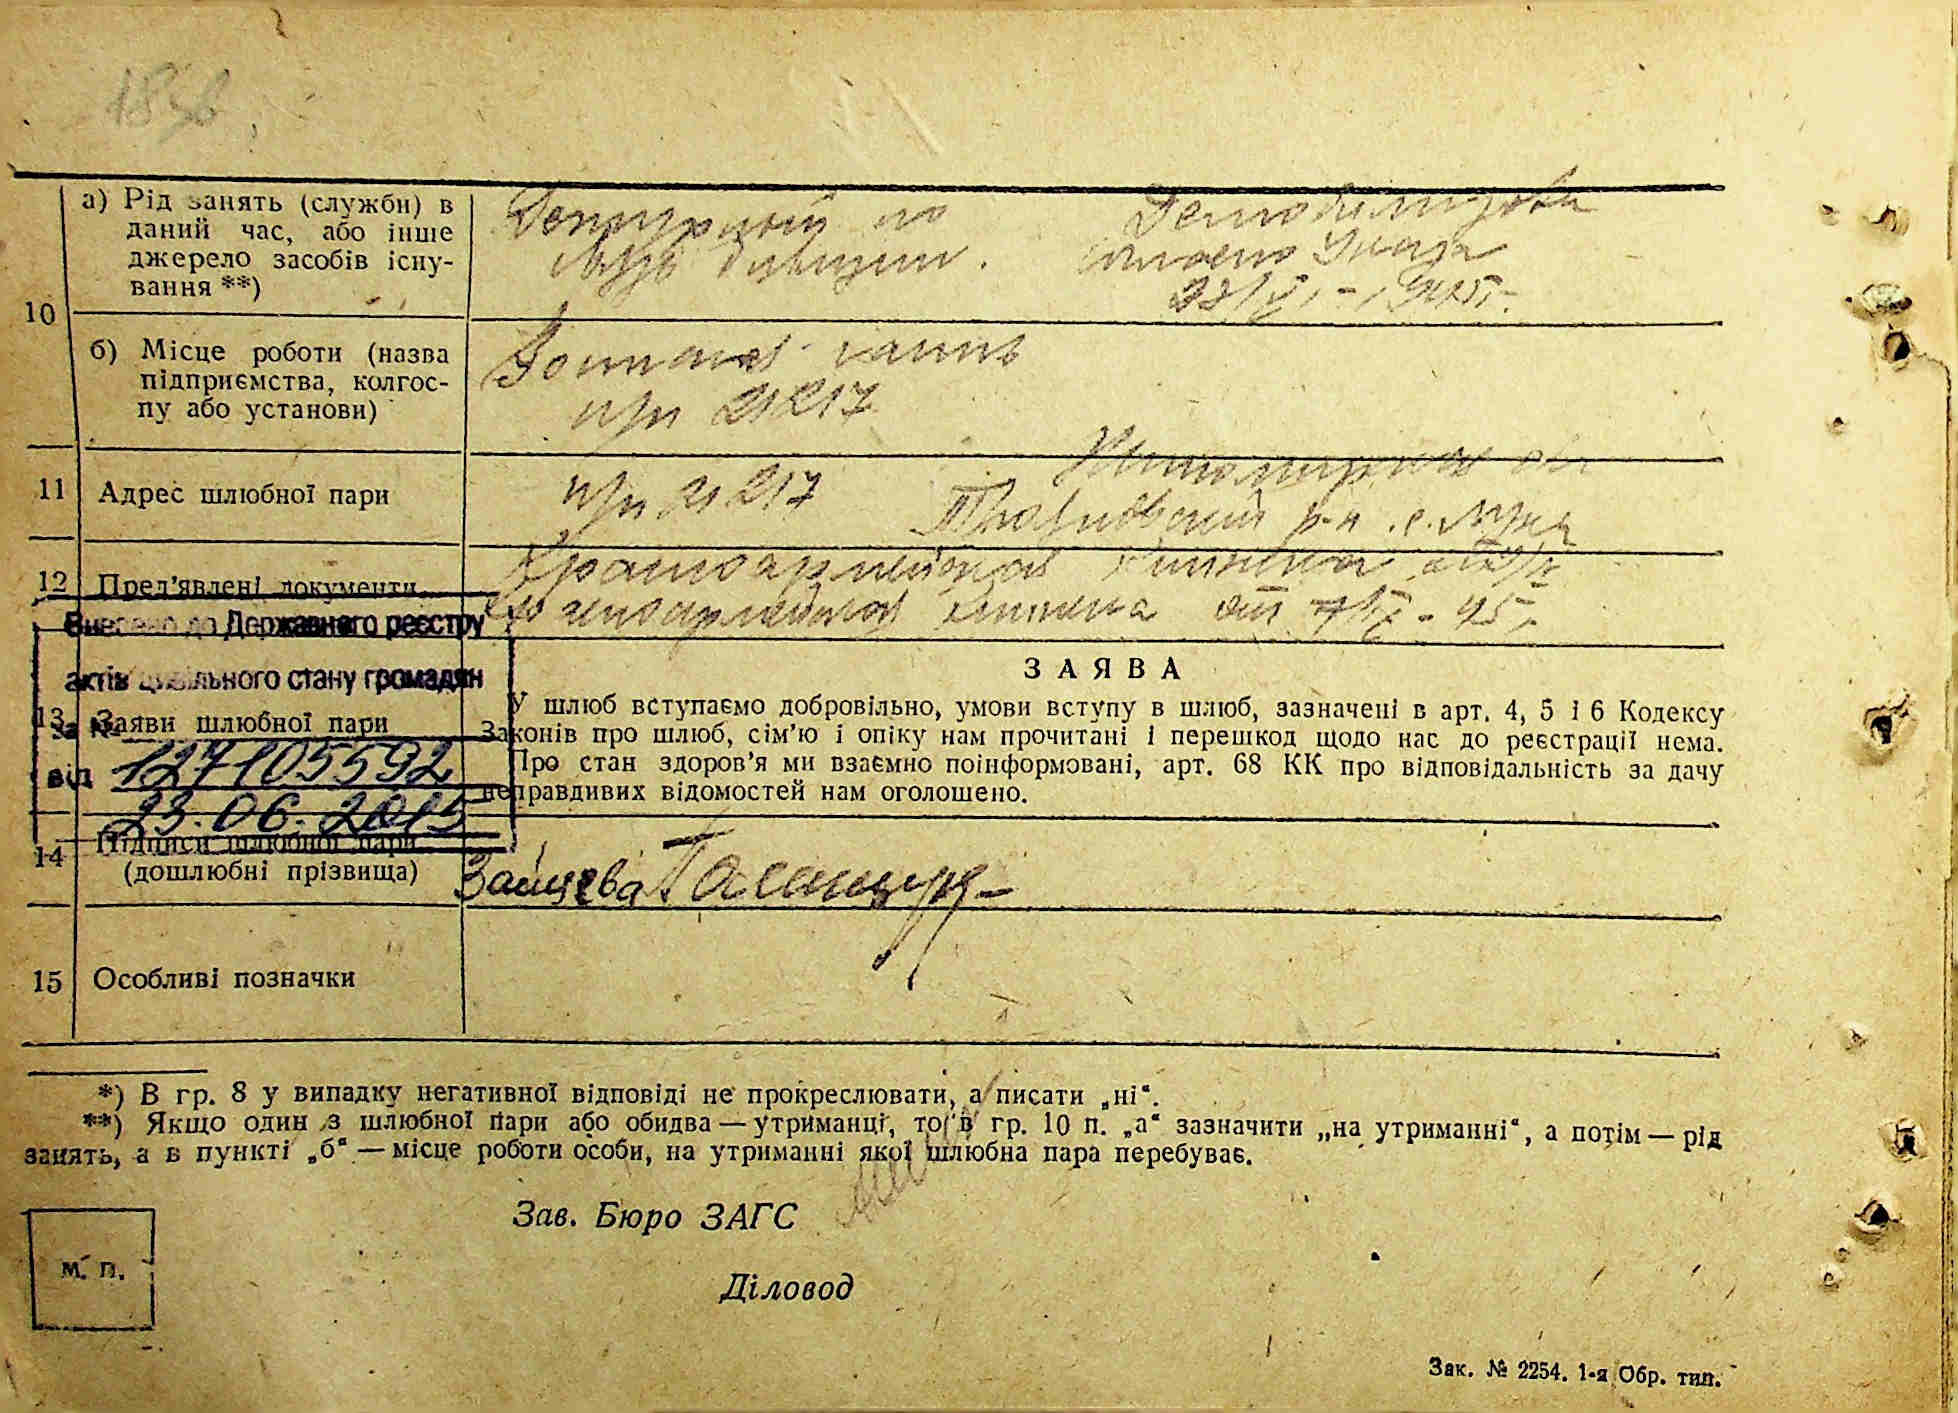 а) Рід занять (служби) в
даний час, або інше
джерело засобів існу-
вання **)
по
Указа
10
б) Місце роботи (назва
підприємства, колгос-
пу або установи)
п/п 21217
11 Адрес шлюбної пари
п/п 21217
р-н. с.
12 Пред'явлені документи
Красноармейская книжка
Красноармейская книжка от
Внесено до Державного реєстру
актів цивільного стану громадян
за №
від 127105592
23.06.2015
13 Заяви шлюбної пари
ЗАЯВА
У шлюб вступаємо добровільно, умови вступу в шлюб, зазначені в арт. 4, 5 і 6 Кодексу
Законів про шлюб, сім'ю і опіку нам прочитані і перешкод щодо нас до реєстрації нема.
Про стан здоров'я ми взаємно поінформовані, арт. 68 КК про відповідальність за дачу
неправдивих відомостей нам оголошено.
14 Підписи шлюбної пари
(дошлюбні прізвища)
Зайцева
15 Особливі позначки
*) В гр. 8 у випадку негативної відповіді не прокреслювати, а писати „ні“.
**) Якщо один з шлюбної пари або обидва — утриманці, то в гр. 10 п. „а“ зазначити „на утриманні“, а потім — рід
занять, а в пункті „б“ — місце роботи особи, на утриманні якої шлюбна пара перебуває.
Зав. Бюро ЗАГС
м. п.
Діловод
Зак. № 2254. 1-я Обр. тип.